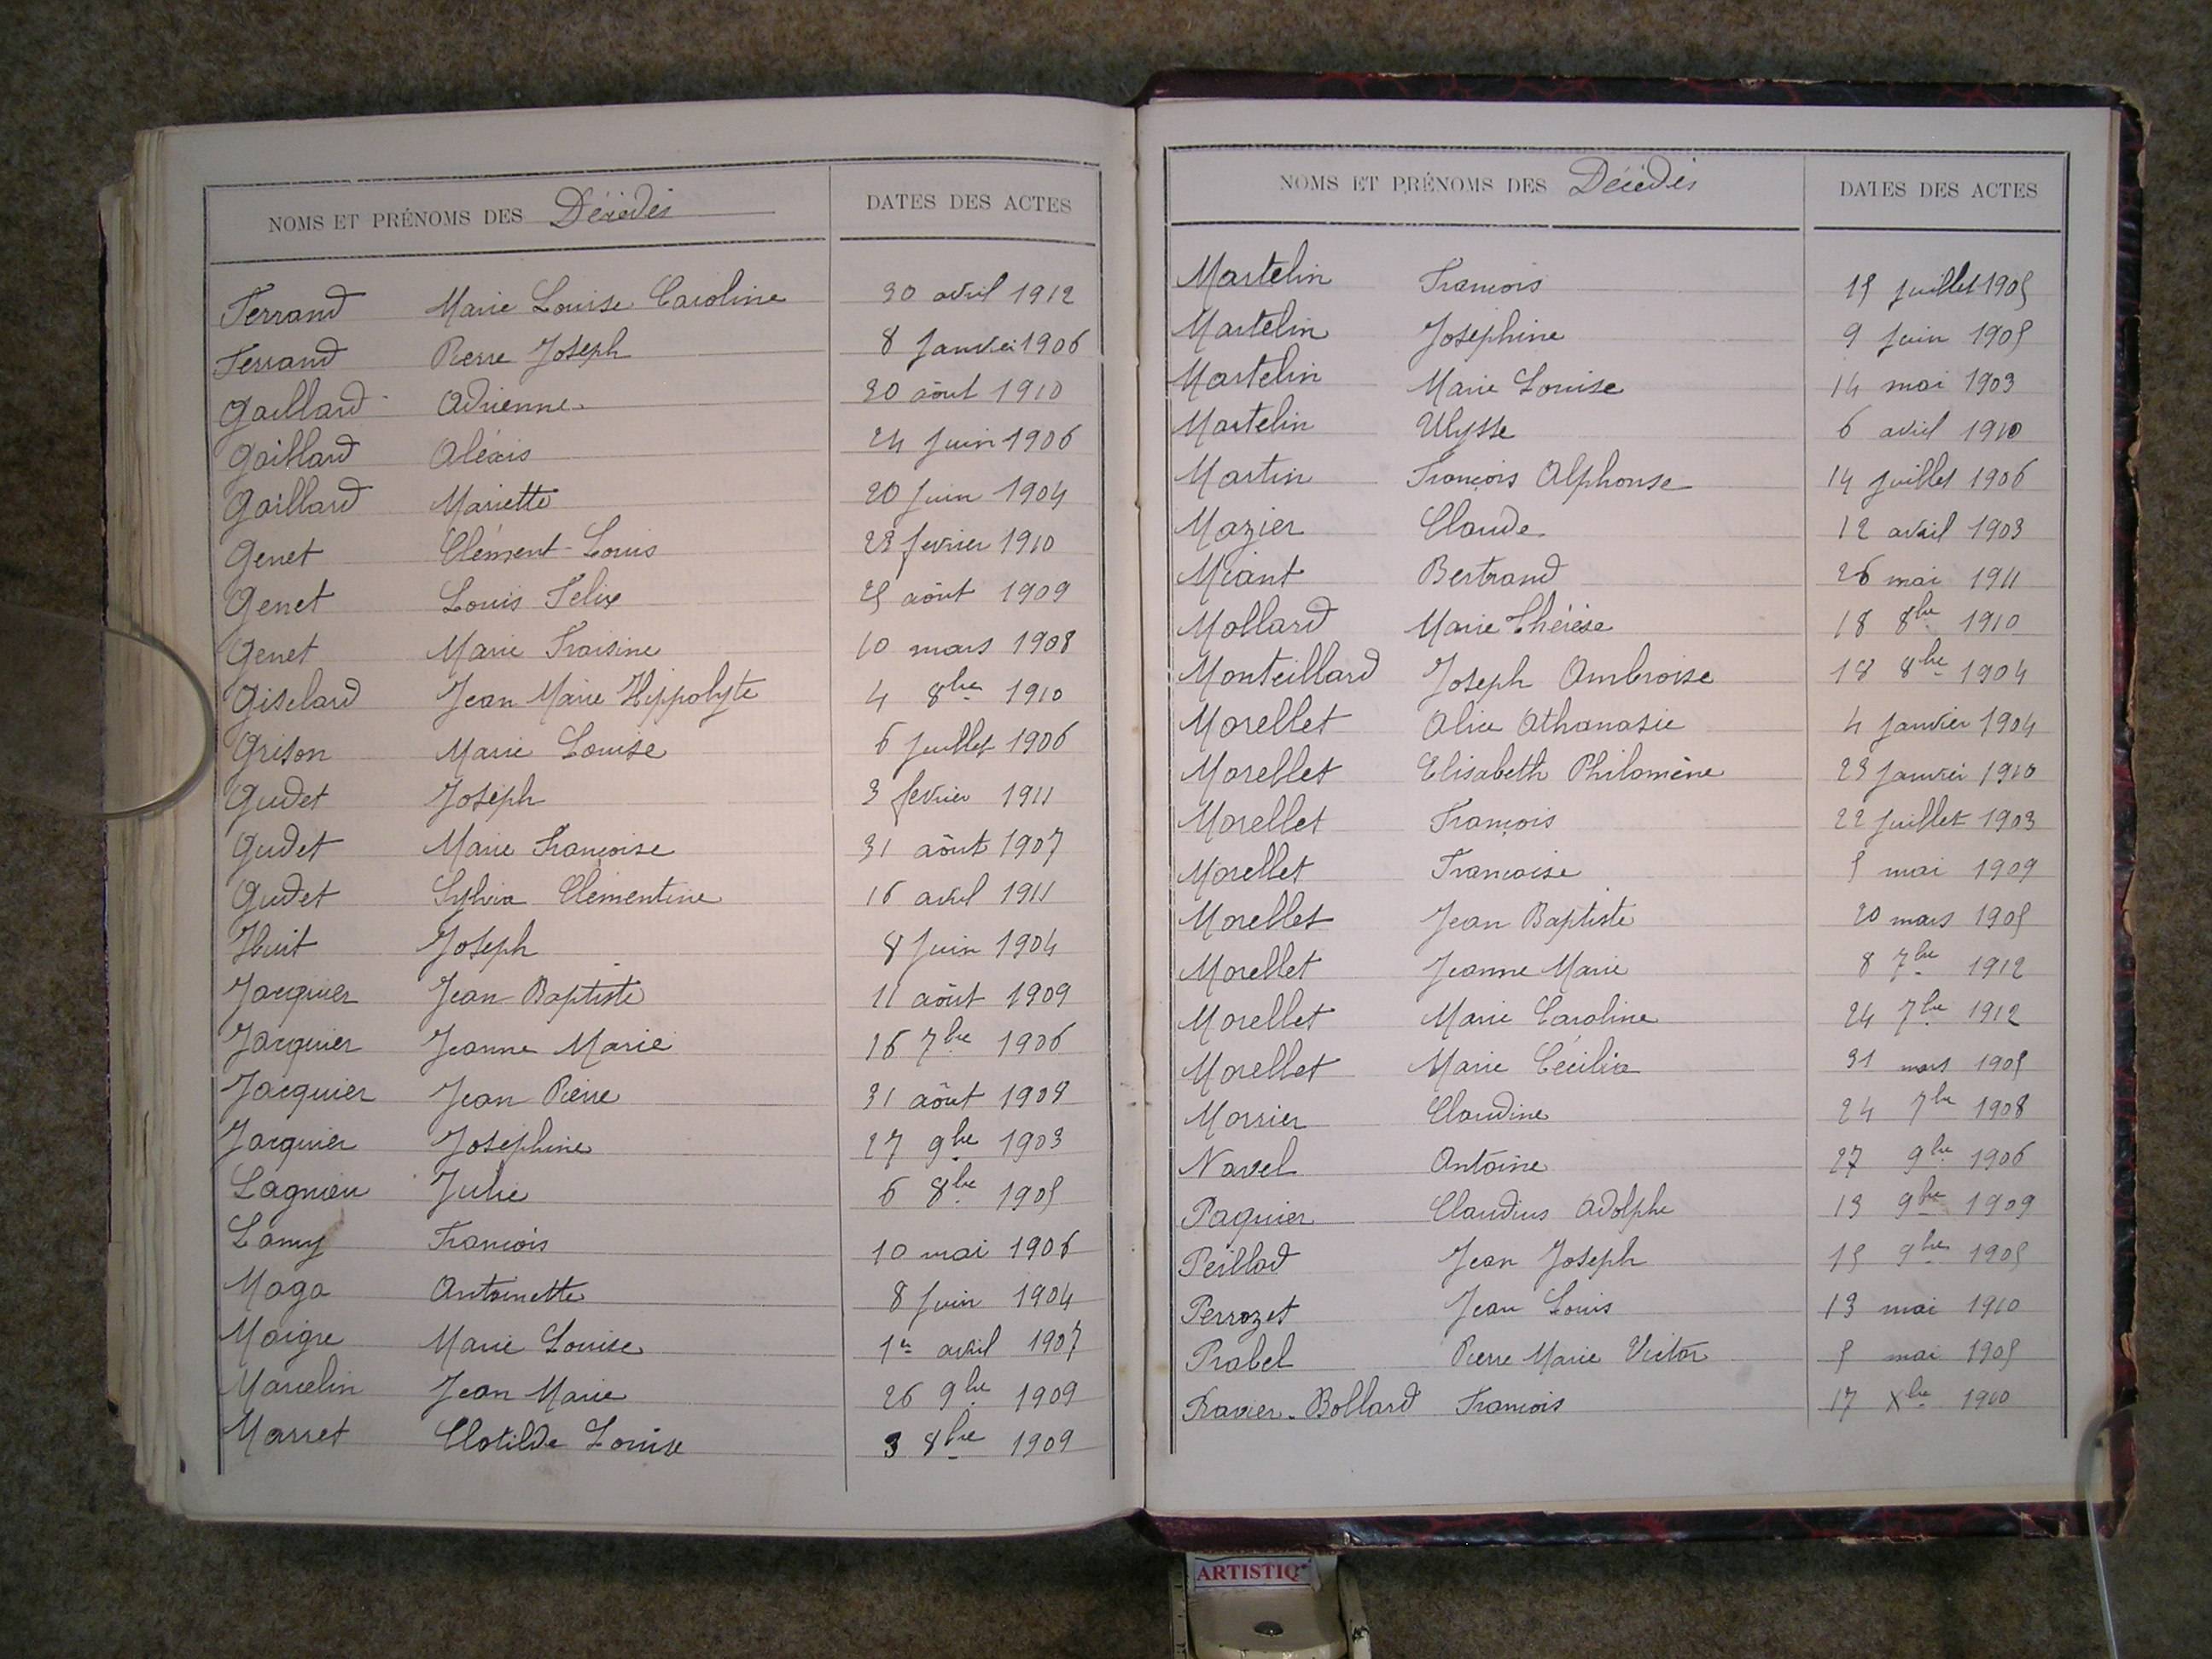 NOMS ET PRÉNOMS DES Décédés DATES DES ACTES
Ferrand Marie Louise Caroline 30 avril 1912
Ferrand Pierre Joseph 8 Janvier 1906
Gaillard Adrienne 30 août 1910
Gaillard Alexis 24 Juin 1906
Gaillard Mariette 20 Juin 1904
Genet Clément-Louis 23 fevrier 1910
Genet Louis Felix 25 août 1909
Genet Marie Fraisine 10 mars 1908
Giselard Jean Marie Hippolyte 4 8bre 1910
Grison Marie Louise 6 Juillet 1906
Gudet Joseph 3 fevrier 1911
Gudet Marie Françoise 31 août 1907
Gudet Sylvia Clémentine 16 avril 1911
Huit Joseph 8 Juin 1904
Jacquier Jean-Baptiste 11 août 1909
Jacquier Jeanne Marie 16 7bre 1906
Jacquier Jean Pierre 31 août 1908
Jacquier Joséphine 27 9bre 1903
Lagnieu Julie 6 8bre 1905
Lamy François 10 mai 1906
Maga Antoinette 8 Juin 1904
Maigre Marie Louise 1er avril 1907
Marcelin Jean Marie 26 9bre 1909
Marret Clotilde Louise 3 8bre 1909
NOMS ET PRÉNOMS DES Décédés DATES DES ACTES
Martelin François 15 juillet 1905
Martelin Joséphine 9 Juin 1905
Martelin Marie Louise 14 mai 1903
Martelin Ulysse 6 avril 1910
Martin François Alphonse 14 juillet 1906
Mazier Claude 12 avril 1903
Miant Bertrand 26 mai 1911
Mollard Marie Thérèse 18 8bre 1910
Monteillard Joseph Ambroise 18 8bre 1904
Morellet Alice Athanasie 4 Janvier 1904
Morellet Elisabeth Philomène 23 Janvier 1910
Morellet François 22 Juillet 1903
Morellet Françoise 5 mai 1909
Morellet Jean Baptiste 20 mars 1905
Morellet Jeanne Marie 8 7bre 1912
Morellet Marie Caroline 24 7bre 1912
Morellet Marie Cécilia 31 mars 1905
Morrier Claudine 24 7bre 1908
Navel Antoine 27 9bre 1906
Paquier Claudius Adolphe 13 9bre 1909
Peillod Jean Joseph 15 9bre 1905
Perrozet Jean Louis 13 mai 1910
Prabel Pierre Marie Victor 5 mai 1905
Ravier-Bollard François 17 Xbre 1910
ARTISTIQ